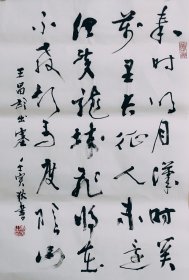 秦时明月汉时关
万里长征人未还
但使龙城飞将在
不教胡马度阴山
王昌龄出塞
壬寅秋书